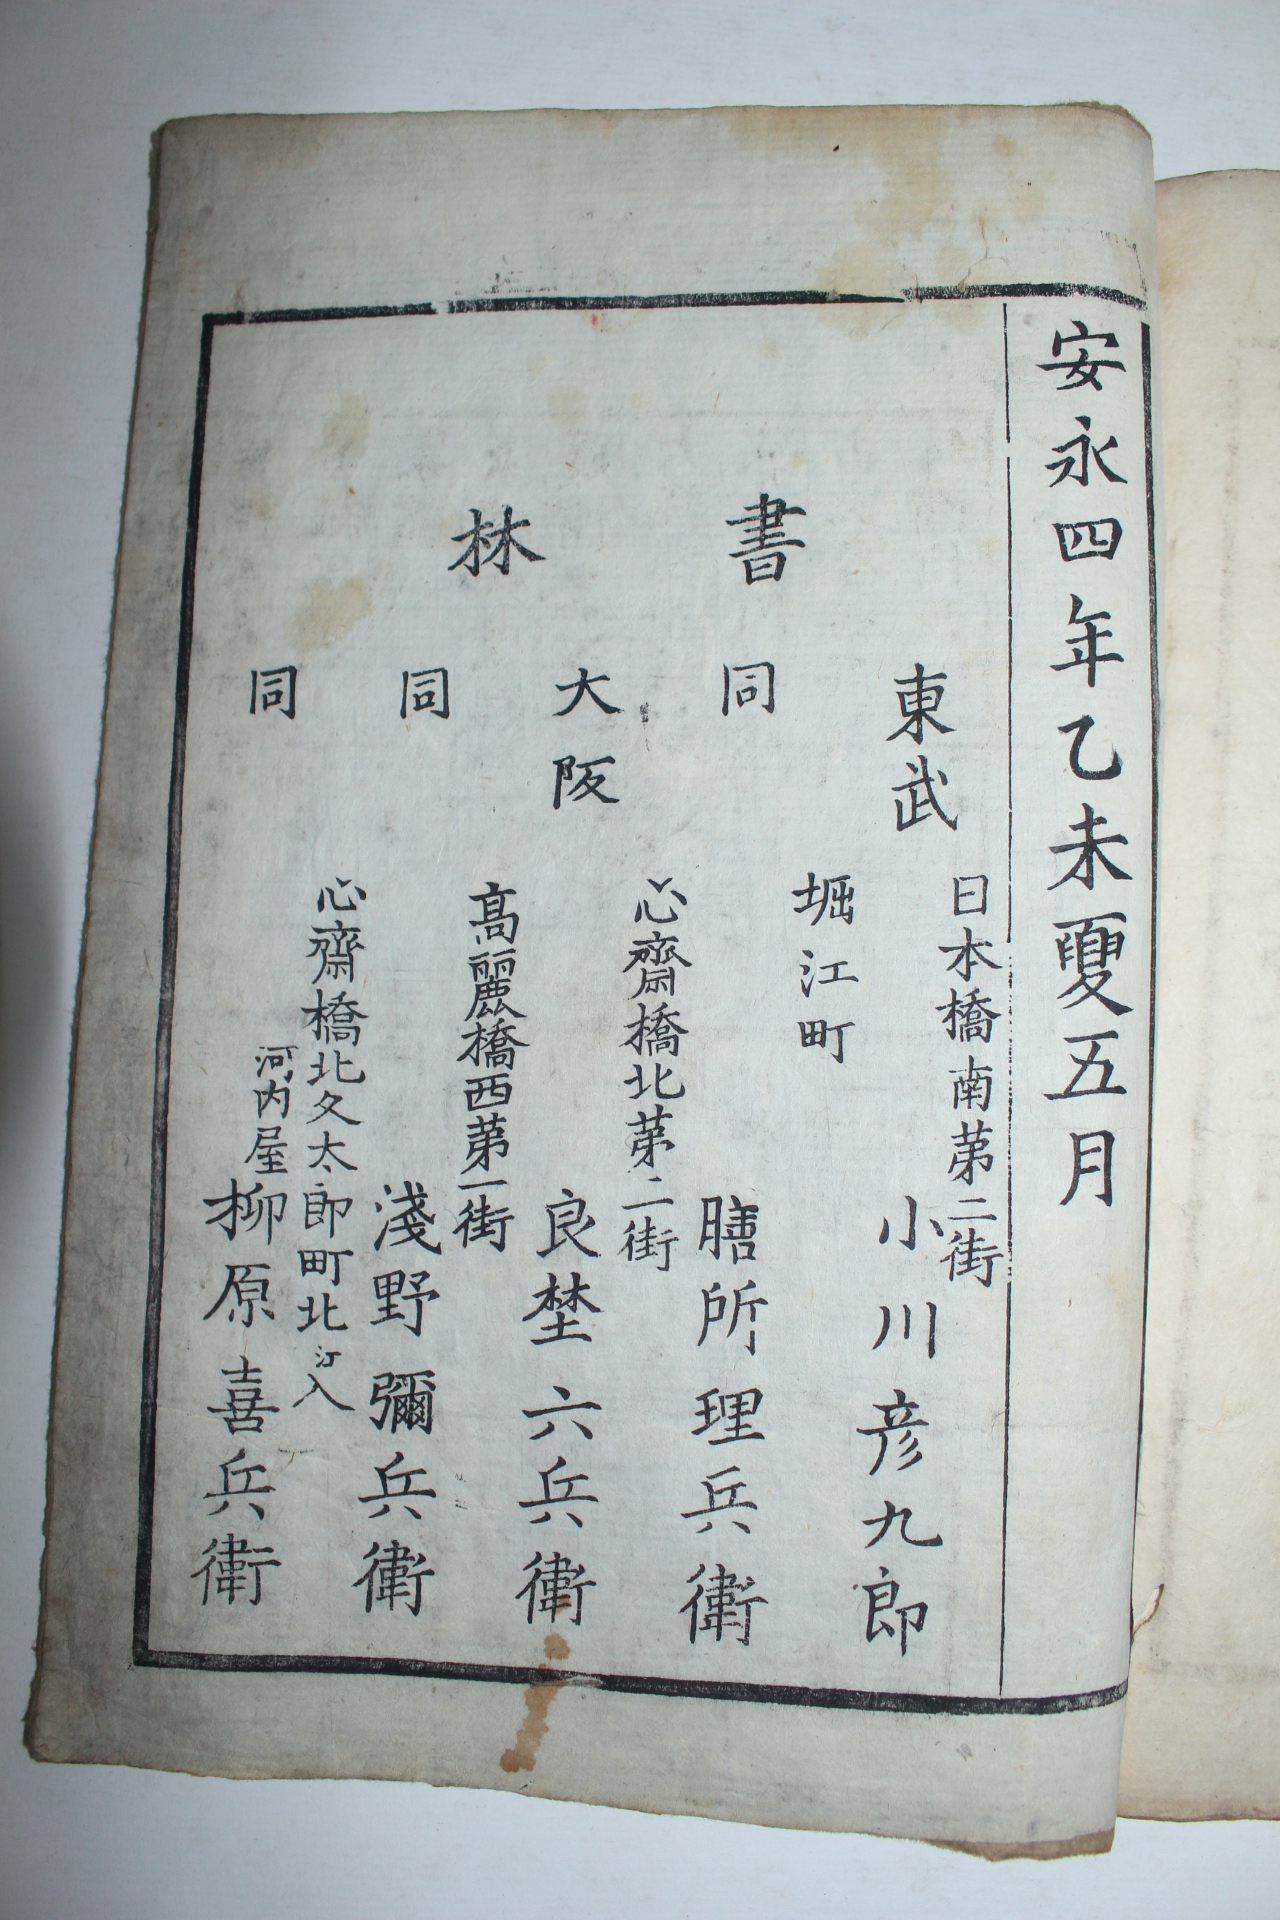 安永四年乙未夏五月
書林
東武 日本橋南第二街 小川彦九郎
同 堀江町 膳所理兵衛
大阪 心齋橋北第二街 良埜六兵衛
同 高麗橋西第一街 淺野彌兵衛
同 心齋橋北久太郎町北ヘ入 河内屋 柳原喜兵衛